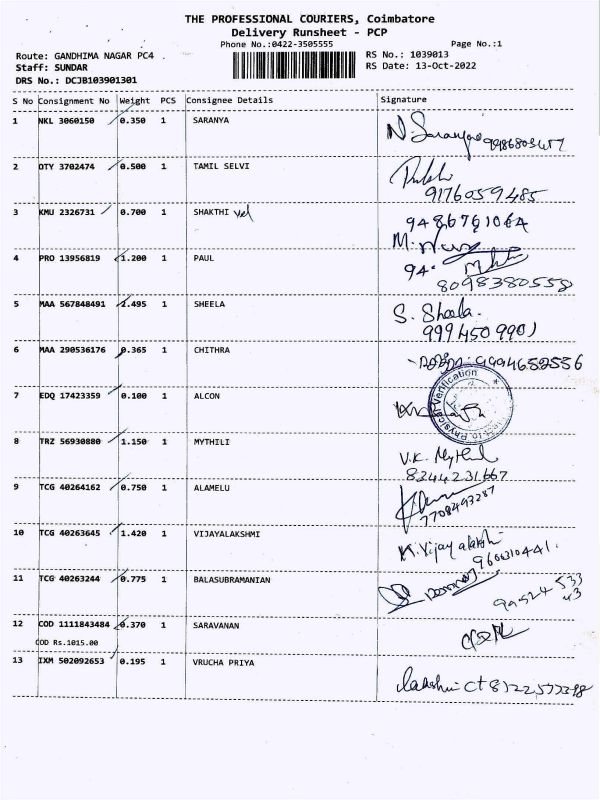 THE PROFESSIONAL COURIERS, Coimbatore
Delivery Runsheet - PCP
Phone No.:0422-3505555 Page No.:1
Route: GANDHIMA NAGAR PC4 RS No.: 1039013
Staff: SUNDAR RS Date: 13-Oct-2022
DRS No.: DCJB103901301
S No Consignment No Weight PCS Consignee Details Signature
1 NKL 3060150 0.350 1 SARANYA N. Saranya
2 OTY 3702474 0.500 1 TAMIL SELVI
9176059485
3 KMU 2326731 0.700 1 SHAKTHI vel
4 PRO 13956819 1.200 1 PAUL
8098380558
5 MAA 567848491 1.495 1 SHEELA S. Sheela.
6 MAA 290536176 0.365 1 CHITHRA 9994652556
7 EDQ 17423359 0.100 1 ALCON
to Physical Verification
8 TRZ 56930880 1.150 1 MYTHILI V.K. Mythili
8344231667
9 TCG 40264162 0.750 1 ALAMELU
7708493287
10 TCG 40263645 1.420 1 VIJAYALAKSHMI K. Vijayalakshmi
11 TCG 40263244 0.775 1 BALASUBRAMANIAN
12 COD 1111843484 0.370 1 SARAVANAN
COD Rs.1015.00
13 IXM 502092653 0.195 1 VRUCHA PRIYA